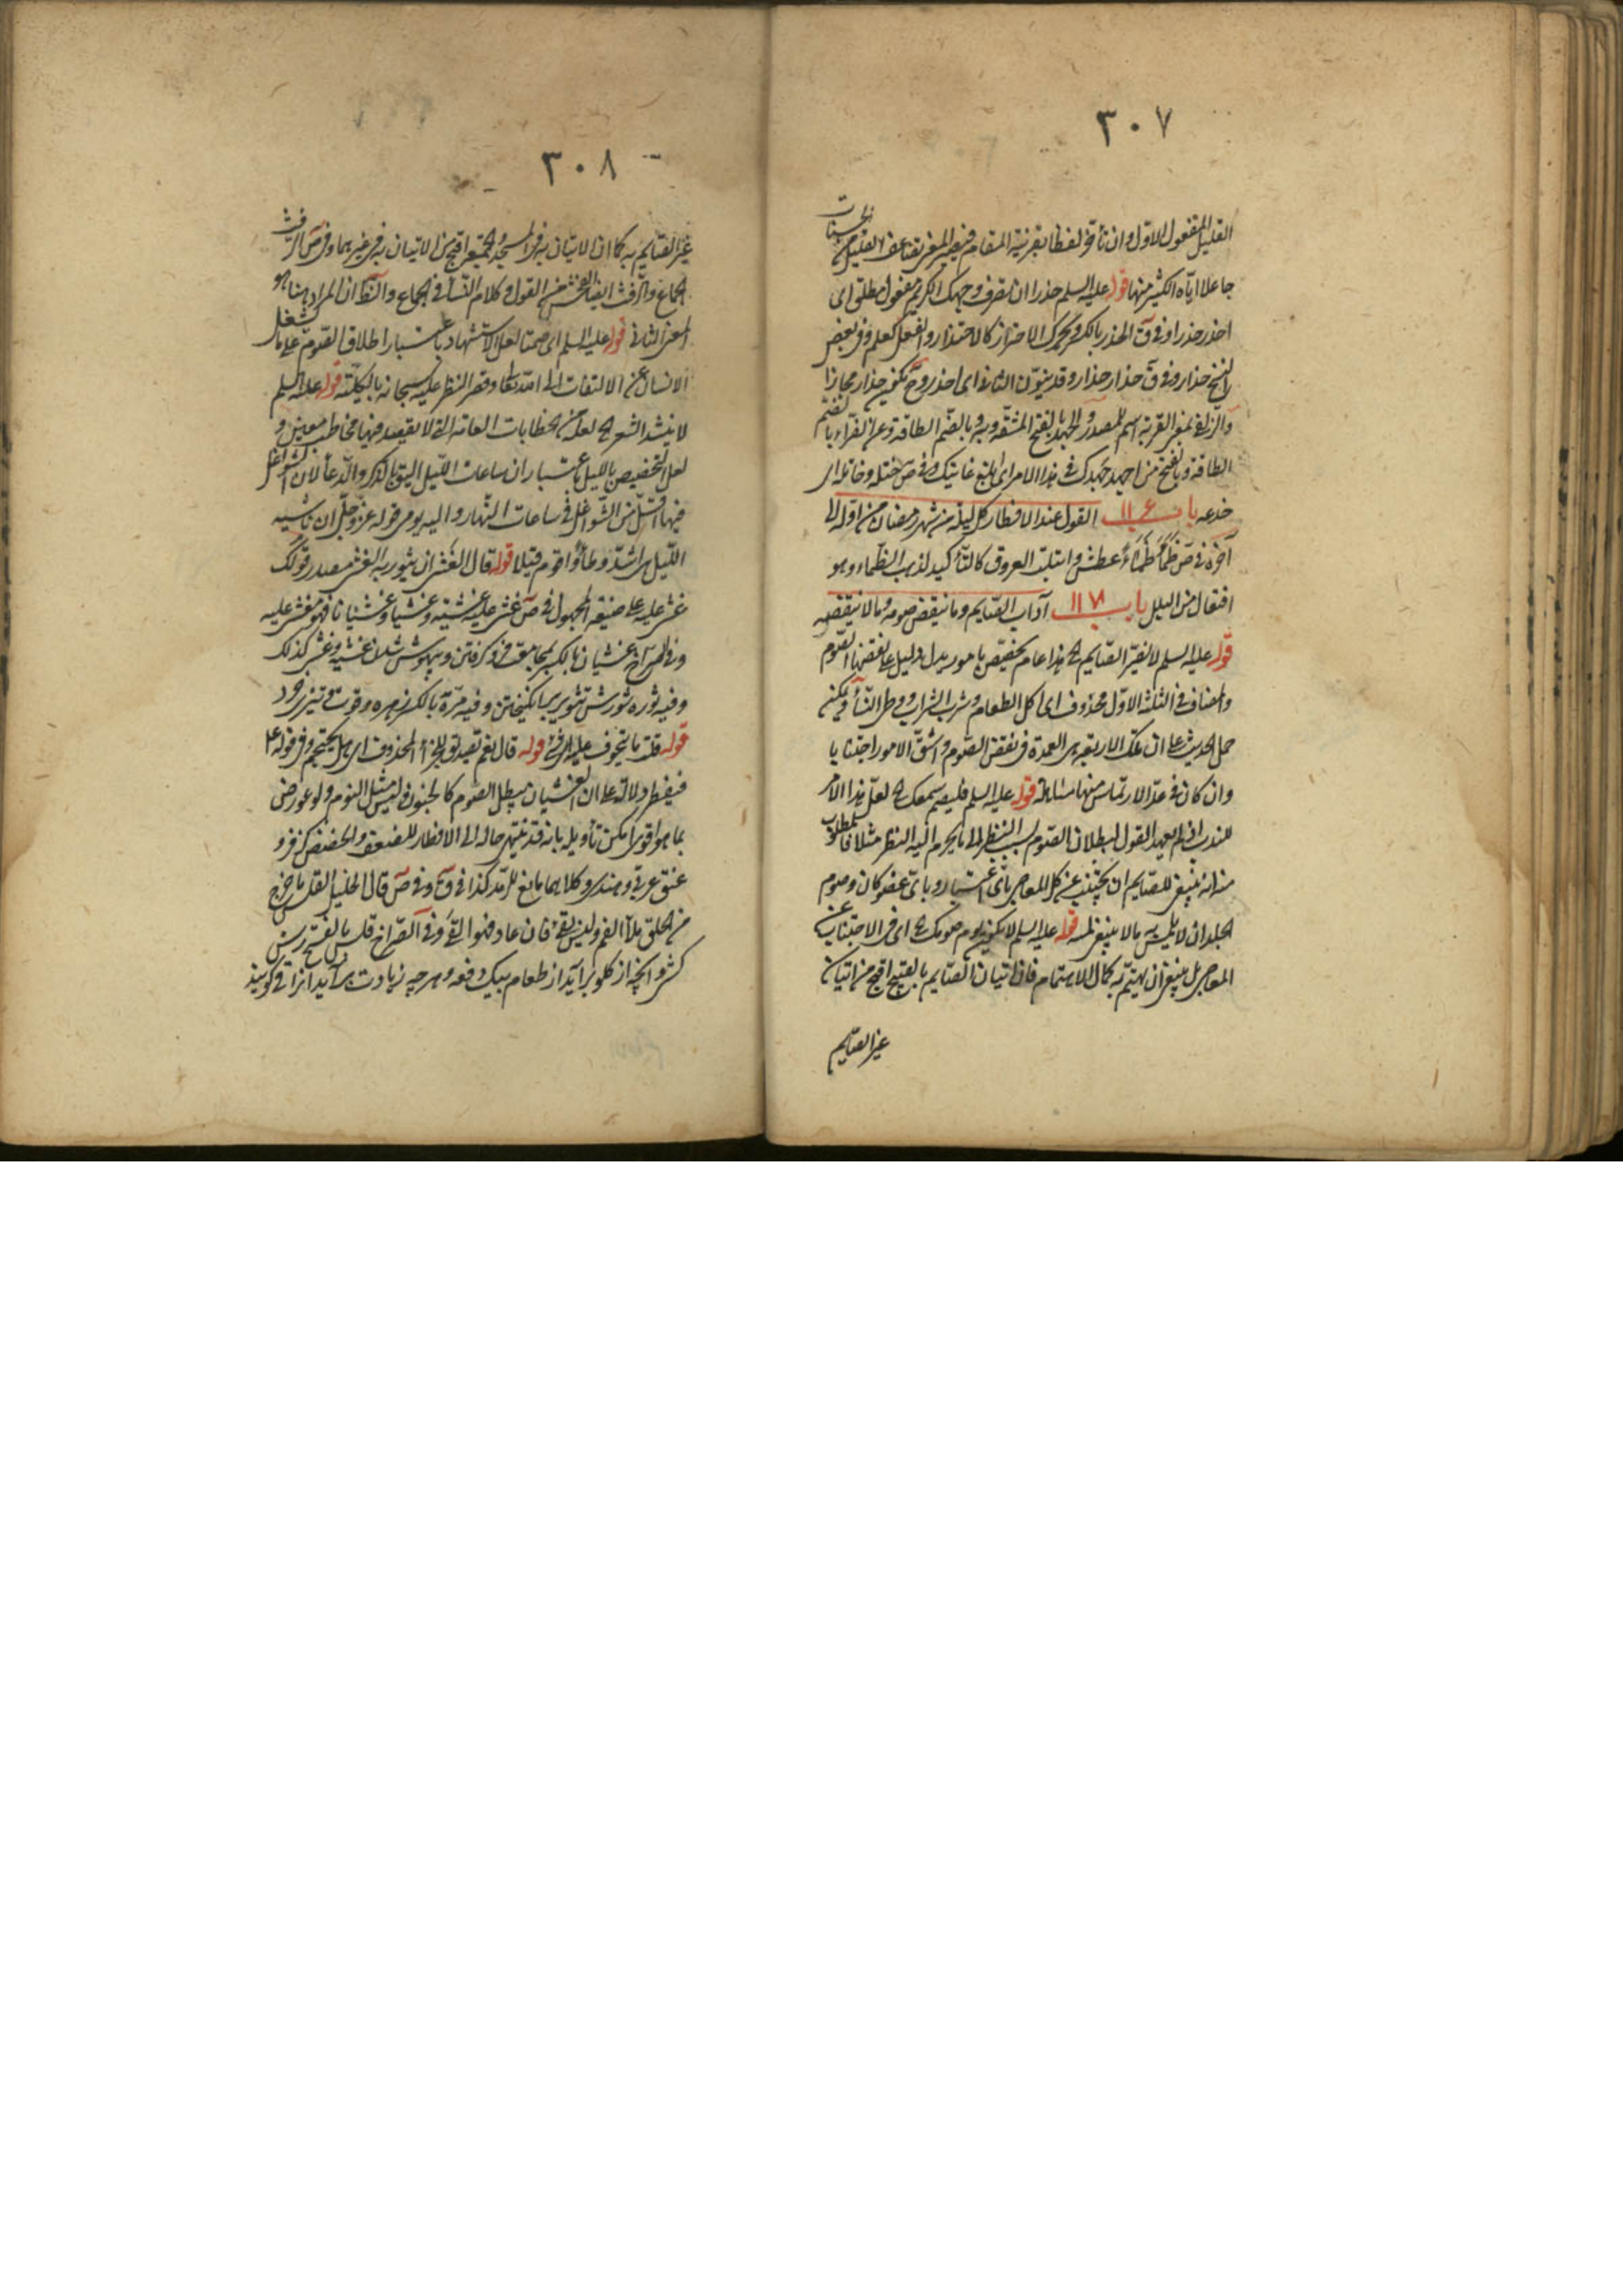 ٣٠٧
القليل المفعول الاول وان تأخر لفظا بقرينة المقام فيصير المعنى تضاعف القليل من الحسنات
جاعلا اياه الكثير منها قوله عليه السلم حذرا ان تصرف وجهك الكريم مفعول مطلق اى
احذر حذرا وفى ق الحذر بالكسر ويحرك الاحتراز كالاحتذار والفعل كعلم وفى بعض
النسخ حذار وفى ق حذار حذار وقد ينون الثانى اى احذر وح يكون حذار مجازا
والزلفى بمعنى القربة اسم للمصدر والجهد بالفتح المشقة وبه وبالضم الطاقة وعن الفراء بالضم
الطاقة وبالفتح من اجهد جهدك فى هذا الامر اى ابلغ غايتك وفى ص ختله وخاتله اى
خدعه باب ١١٦ القول عند الافطار كل ليلة من شهر رمضان من اوله الى
آخره فى ص ظمأ ظمأ عطش وابتلت العروق كالتأكيد لذهب الظماء وهو
افتعال من البلل باب ١١٧ آداب الصايم وما ينقض صومه وما لا ينقضه
قوله عليه السلم لا يضر الصايم الخ هذا عام يخصص بامور يدل دليل على نقضها الصوم
والمضاف فى الثلثة الاول محذوف اى اكل الطعام وشرب الشراب ووطى النساء ويمكن
حمل الحديث على ان تلك الاربعة هى العمدة فى نقض الصوم واشق الامور اجتنابا
وان كان فى عد الارتماس منها مسامحة قوله عليه السلم فليصم سمعك الخ لعل هذا الامر
للندب اذ لم يعهد القول ببطلان الصوم بسبب النظر الى ما يحرم اليه النظر مثلا فالمطلوب
منه انه ينبغى للصايم ان يجتنب عن كل المعاصى باى اعتبار وباى عضو كان وصوم
الجلد ان لا يلمس به ما لا ينبغى لمسه قوله عليه السلم لا يكون يوم صومك الخ اى فى الاجتناب عن
المعاصى بل ينبغى ان يهتم به كمال الاهتمام فان اتيان الصايم بالقبيح اقبح من اتيان
غير الصايم
٣٠٨
غير الصايم به كما ان الاتيان به فى المسجد والجمعة اقبح من الاتيان به فى غيرهما وفى ص الرفث
الجماع والرفث ايضا الفحش من القول وكلام النساء فى الجماع والظ ان المراد هنا هو
المعنى الثانى قوله عليه السلم اى صمتا لعل الاستشهاد باعتبار اطلاق الصوم على ما يشغل
الانسان عن الالتفات الى الله تعالى وقصر النظر عليه سبحانه بالكلية قوله عليه السلم
لا ينشد الشعر الخ لعله من الخطابات العامة التى لا يقصد فيها مخاطب معين و
لعل التخصيص بالليل باعتبار ان ساعات الليل اليق بالذكر والدعاء لان الشواغل
فيها اقل من الشواغل فى ساعات النهار واليه يومى قوله عز وجل ان ناشئة
الليل هى اشد وطأ واقوم قيلا قوله قال الغشى ان يثور به الغشى مصدر قولك
غشى عليه على صيغة المجهول فى ص غشى عليه غشية وغشيا وغشيانا فهو مغشى عليه
غشيان بالكسر مجامعت فرو گرفتن وبيهوش شدن غشية وغشى كذلك
وفيه ثوره شورش تثوير برانگيختن وفيه مرة بالكسر زهره وقوت وتيزى خرد
قوله قلت ما يتخوف عليه الى شىء قوله قال نعم تصديق للجزاء المحذوف اى هل يحتجم وفى قوله ع
فيفطر دلالة على ان الغشيان يبطل الصوم كالجنون وليس مثل النوم ولو عورض
بما هو اقوى امكن تأويله بانه قد ينتهى حاله الى الافطار للضعف والحضض كزفر و
عنق عربى وهندى وكلاهما نافع للرمد كذا فى ق وفى ص قال الخليل القلس ما خرج
من الحلق ملأ الفم وليس بقىء فان عاد فهو القىء وفى الصراح قلس بالفتح رسن
كشتى وآنچه از گلو برآيد از طعام بيك دفعه وهر چه زيادت برآيد آنرا قى گويند